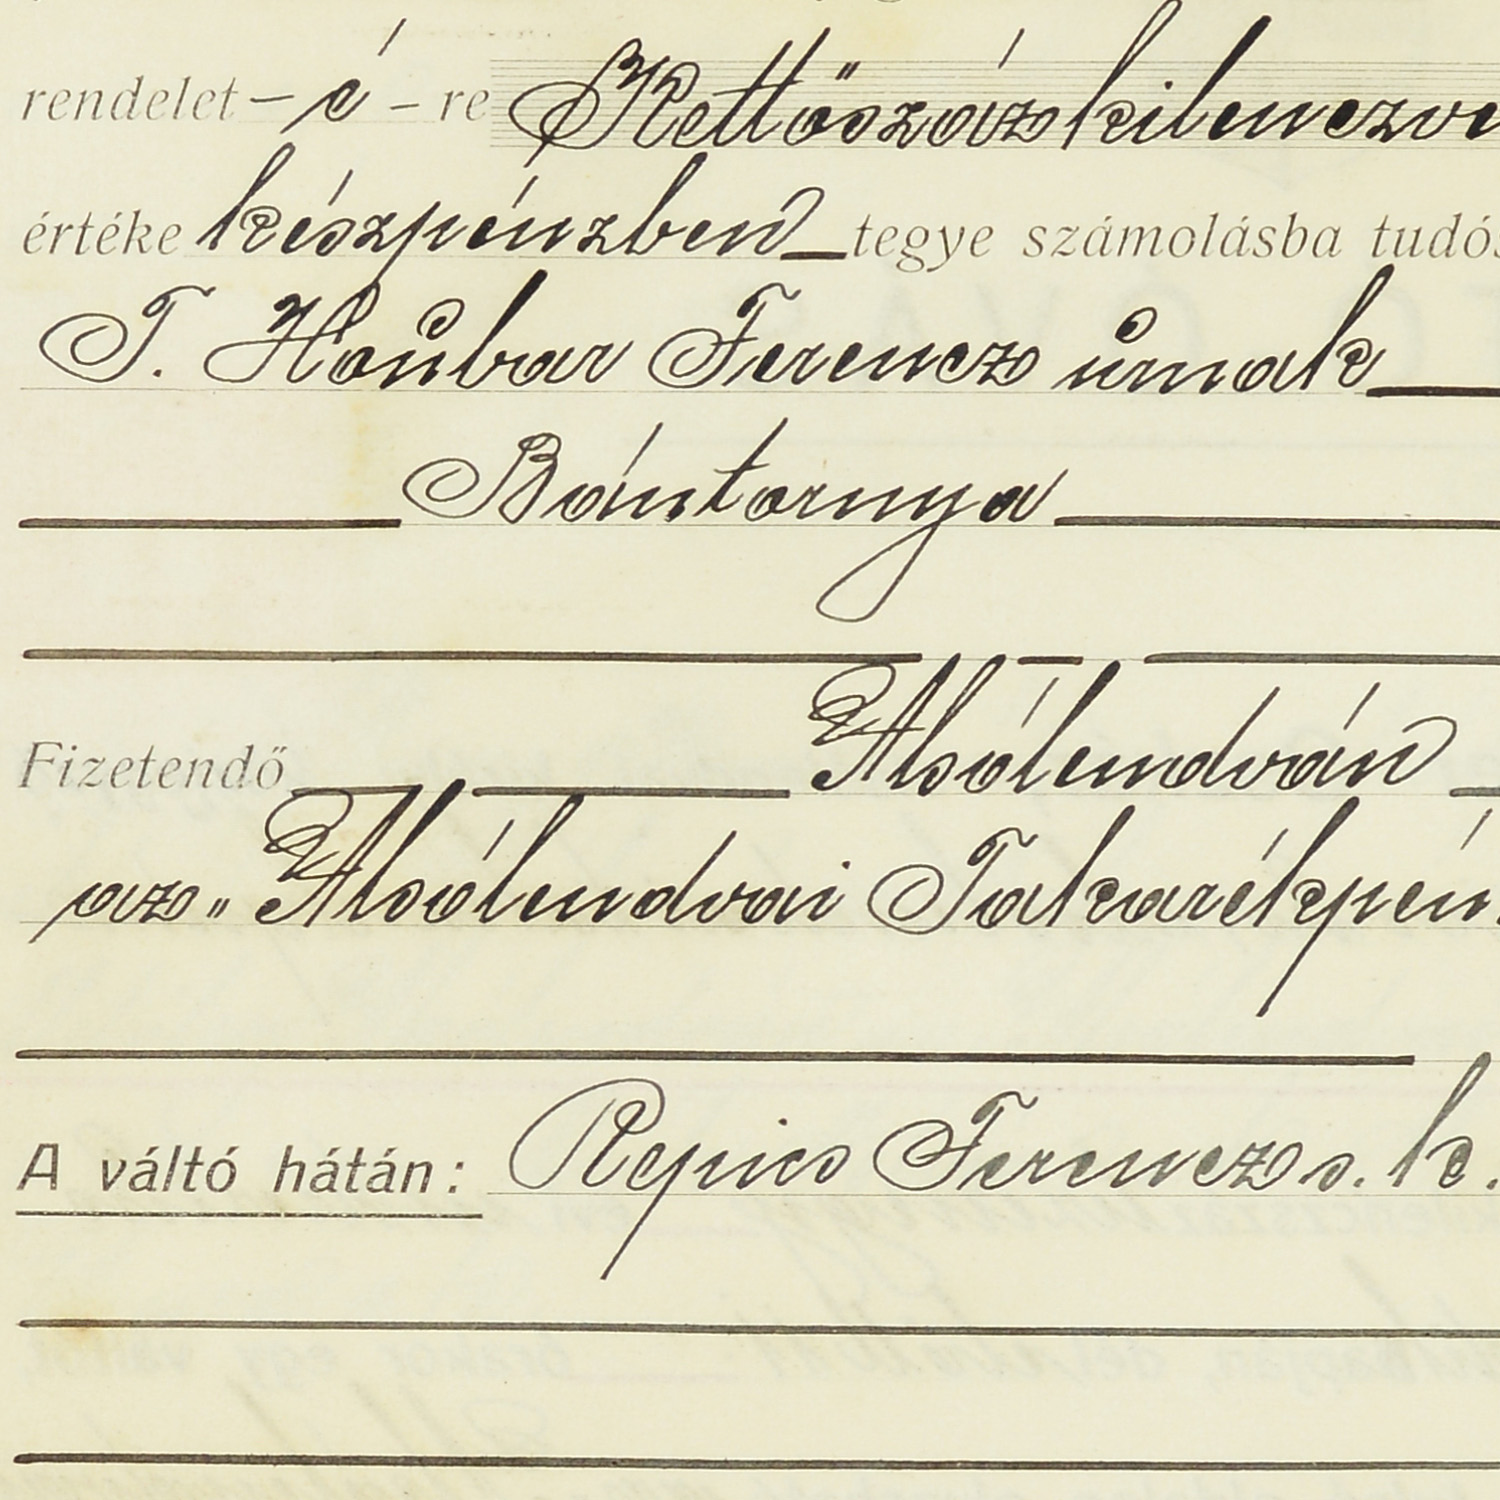 rendelet – é – re Kettőszázkilenczve
értéke készpénzben tegye számolásba tudós
T. Houbar Ferencz úrnak
Bántornya
Fizetendő Alsólendván
az „Alsólendvai Takarékpén
A váltó hátán: Repics Ferencz s. k.